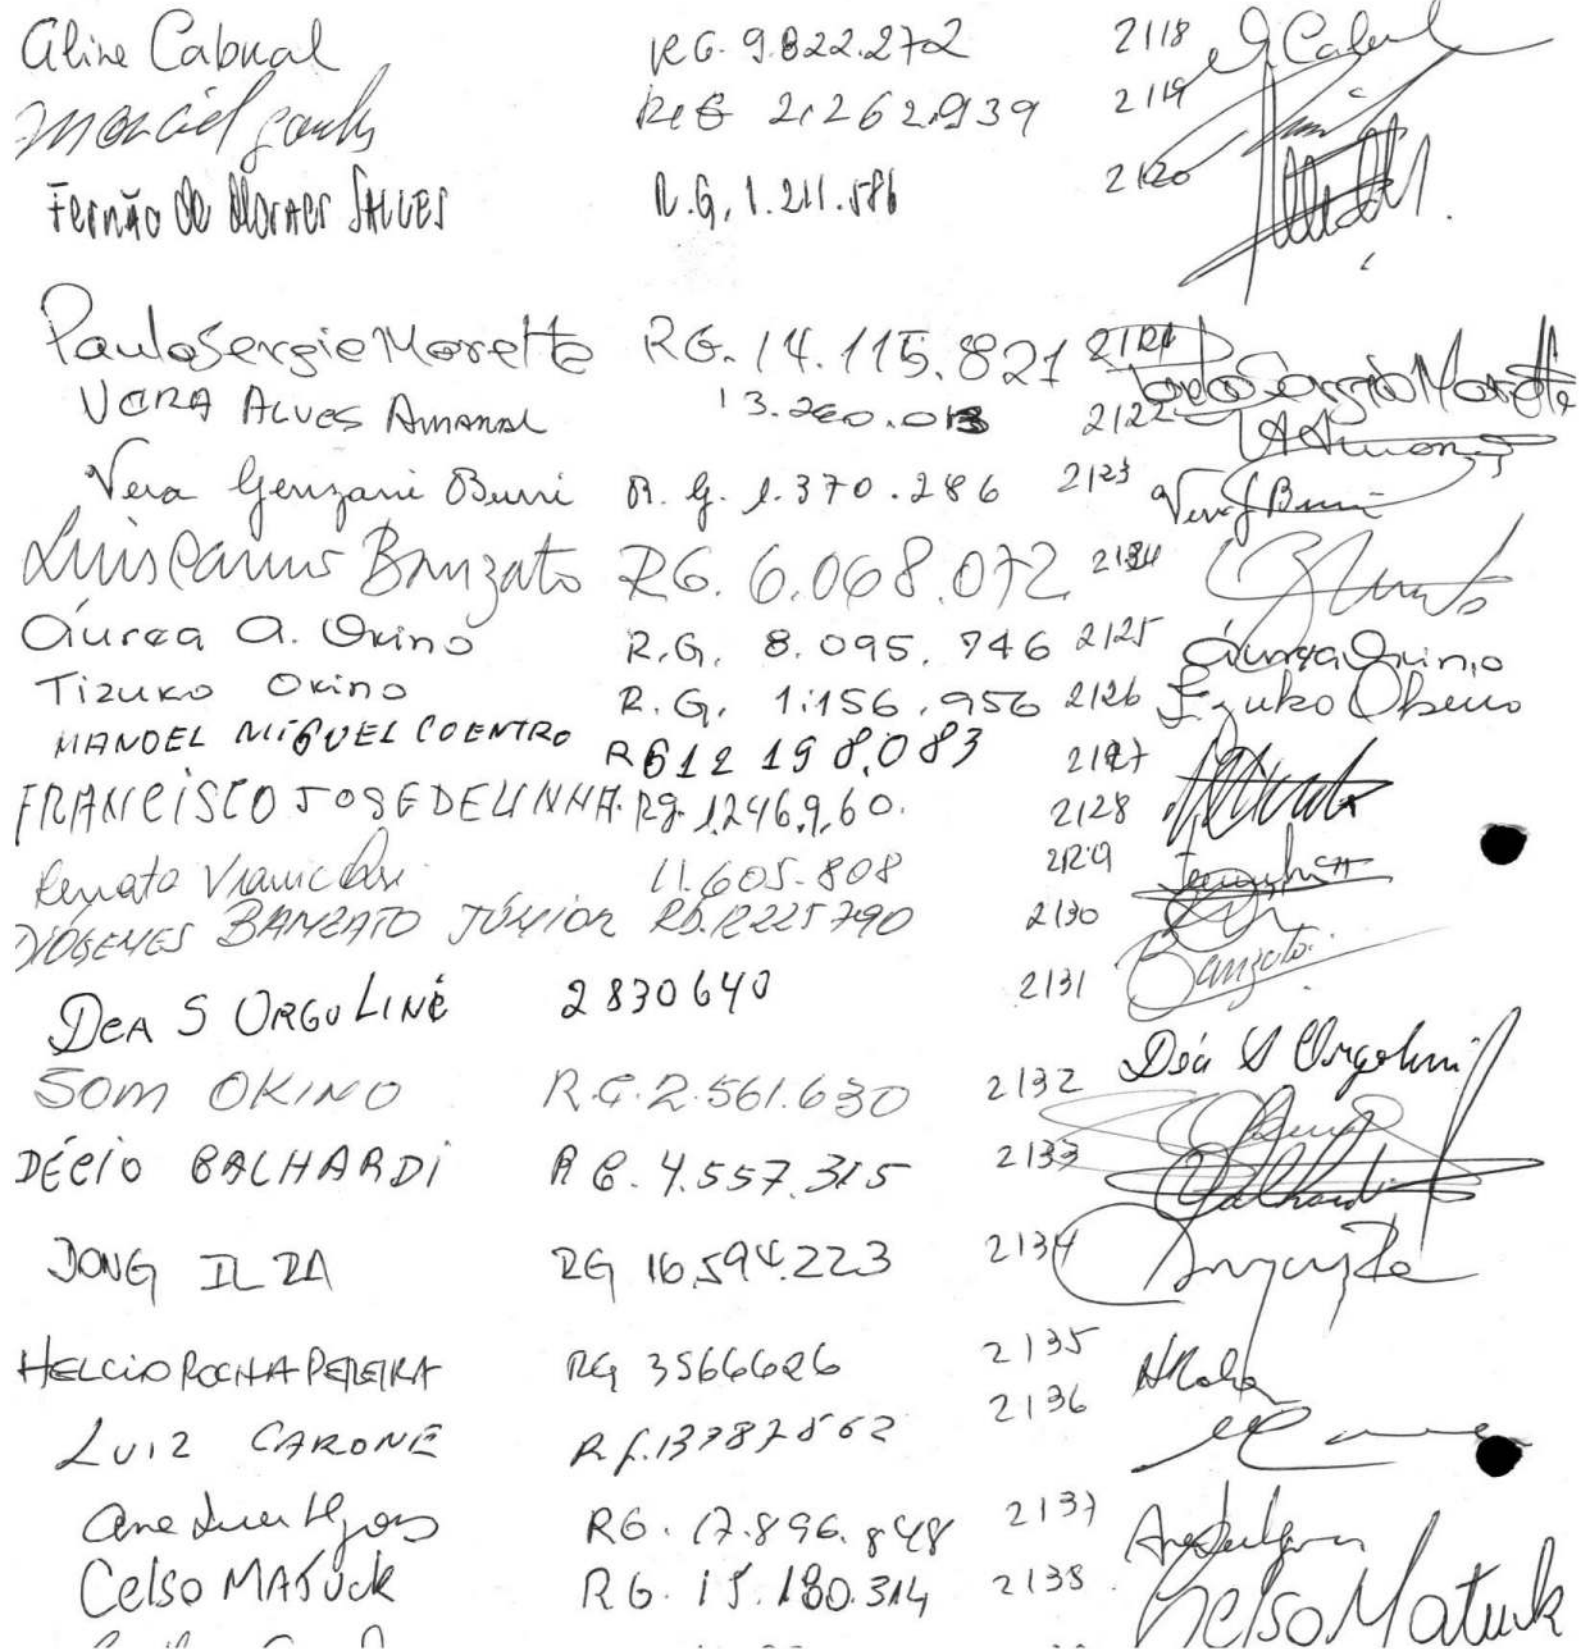 Aline Cabral RG. 9.822.272 2118 A. Cabral
Marciel RG 2.262.939 2119
Fernão de Moraes SALLES R.G. 1.211.586 2120
Paulo Sergio Moretto RG. 14.115.821 2121 Paulo Sergio Moretto
VERA ALVES AMARAL 13.260.013 2122 VAAmaral
Vera Genzani Burri R.G. 1.370.286 2123 Vera G Burri
Luis Carlos Banzato RG. 6.068.072 2124
Áurea A. Okino R.G. 8.095.746 2125 Áurea Okino
Tizuko Okino R.G. 1.156.956 2126 Tizuko Okino
MANOEL MIGUEL COENTRO RG 12 198.083 2127
FRANCISCO JOSE DELINHA. Rg. 1.246.960. 2128
Renato 11.605.808 2129
DIÓGENES BANZATO JÚNIOR RG. 12225790 2130 Banzato
DEA S ORGOLINE 2830640 2131 Déa S Orgolini
SOM OKINO R.G. 2.561.630 2132
DÉCIO BALHARDI RG. 4.557.315 2133 Balhardi
JONG IL RA RG 16.594.223 2134
HELCIO ROCHA PEREIRA RG 3566626 2135 HRocha
LUIZ CARONE RG. 13787562 2136
Ana RG. 17.896.848 2137
Celso MATUCK RG. 15.180.314 2138 Celso Matuck